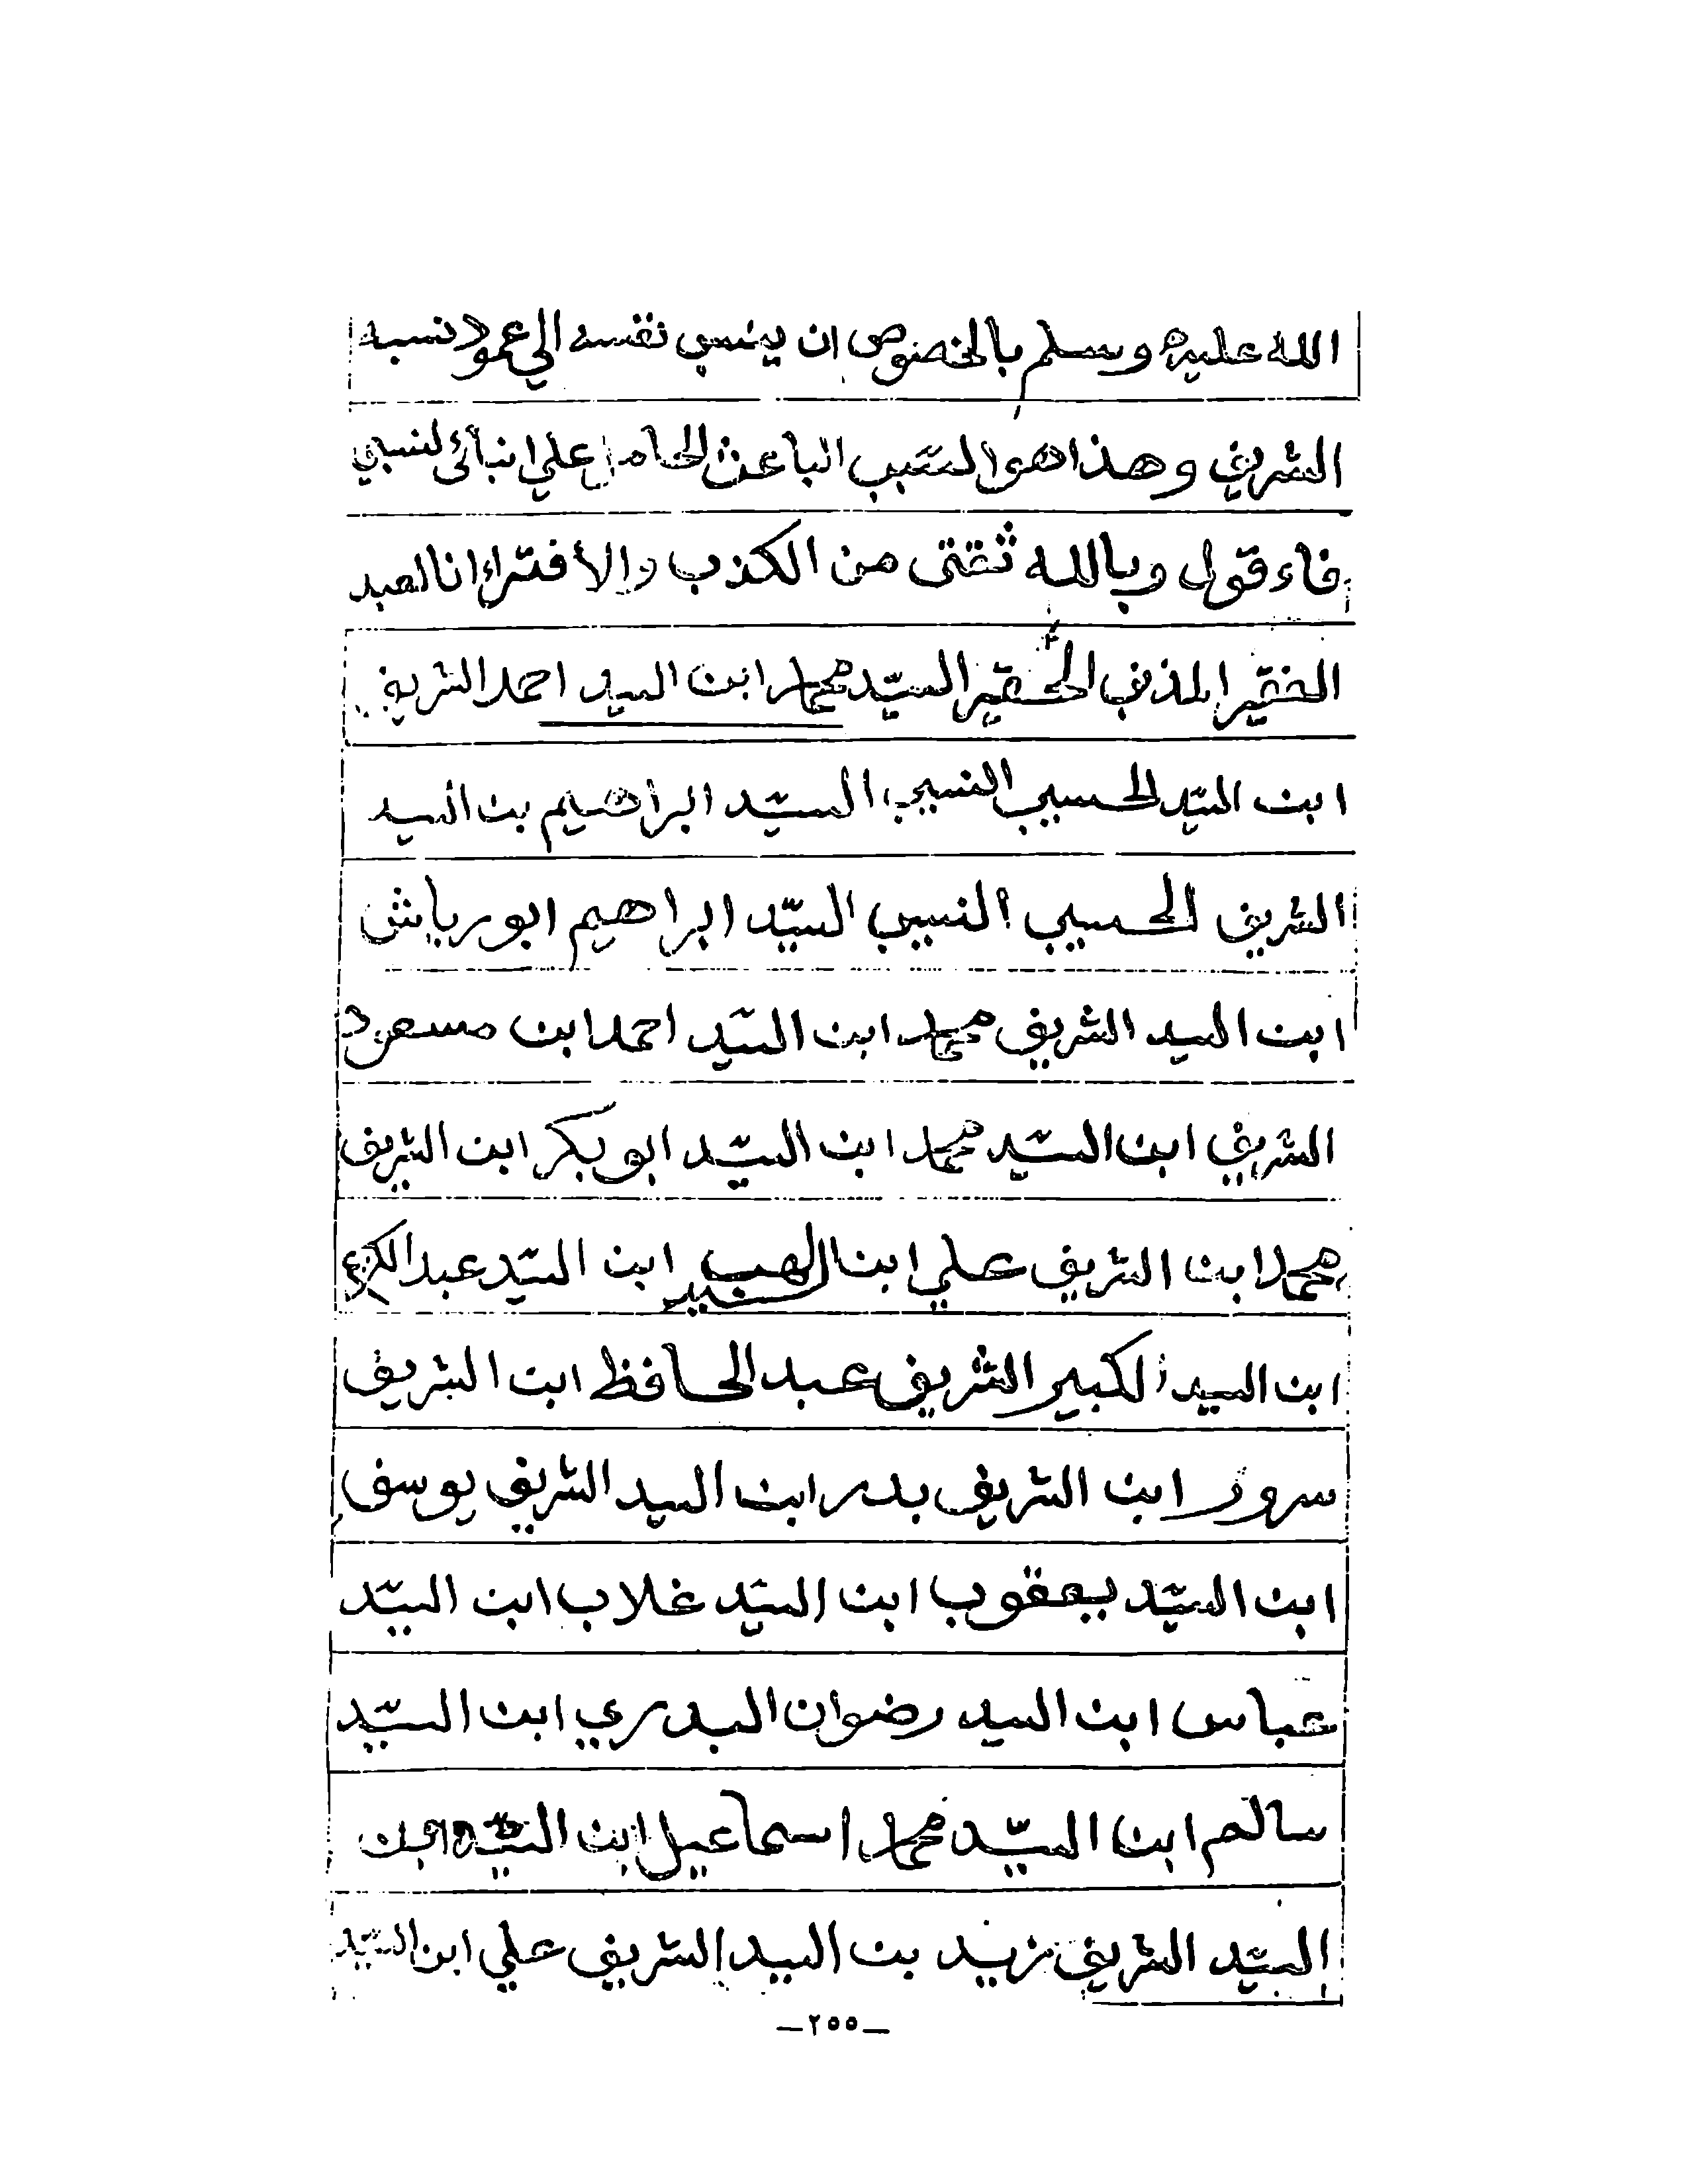 الله عليه وسلم بالخصوص ان ينسب نفسه الي عمود نسبه
الشريف وهذا هو السبب الباعث الحامل علي انبائى لنسبي
فاء قول وبالله ثقتى من الكذب والأفتراء انا العبد
الفقير المذنب الحقير السيّد محمد ابن السيد احمد الشريف
ابن السيّد الحسيب النسيب السيّد ابراهيم بن السيد
الشريف الحسيب النسيب السيّد ابراهيم ابو رياش
ابن السيد الشريف محمد ابن السيّد احمد ابن مسعود
الشريف ابن السيّد محمد ابن السيّد ابو بكر ابن الشريف
محمد ابن الشريف علي ابن ابن السيّد عبد الكريم
ابن السيد الكبير الشريف عبد الحافظ ابن الشريف
سرور ابن الشريف بدر ابن السيد الشريف يوسف
ابن السيّد يعقوب ابن السيّد غلاب ابن السيّد
عباس ابن السيد رضوان البدري ابن السيّد
سالم ابن السيّد محمد اسماعيل ابن السيّد ابن
السيّد الشريف زيد بن السيد الشريف علي ابن السيّد
—٢٥٥—